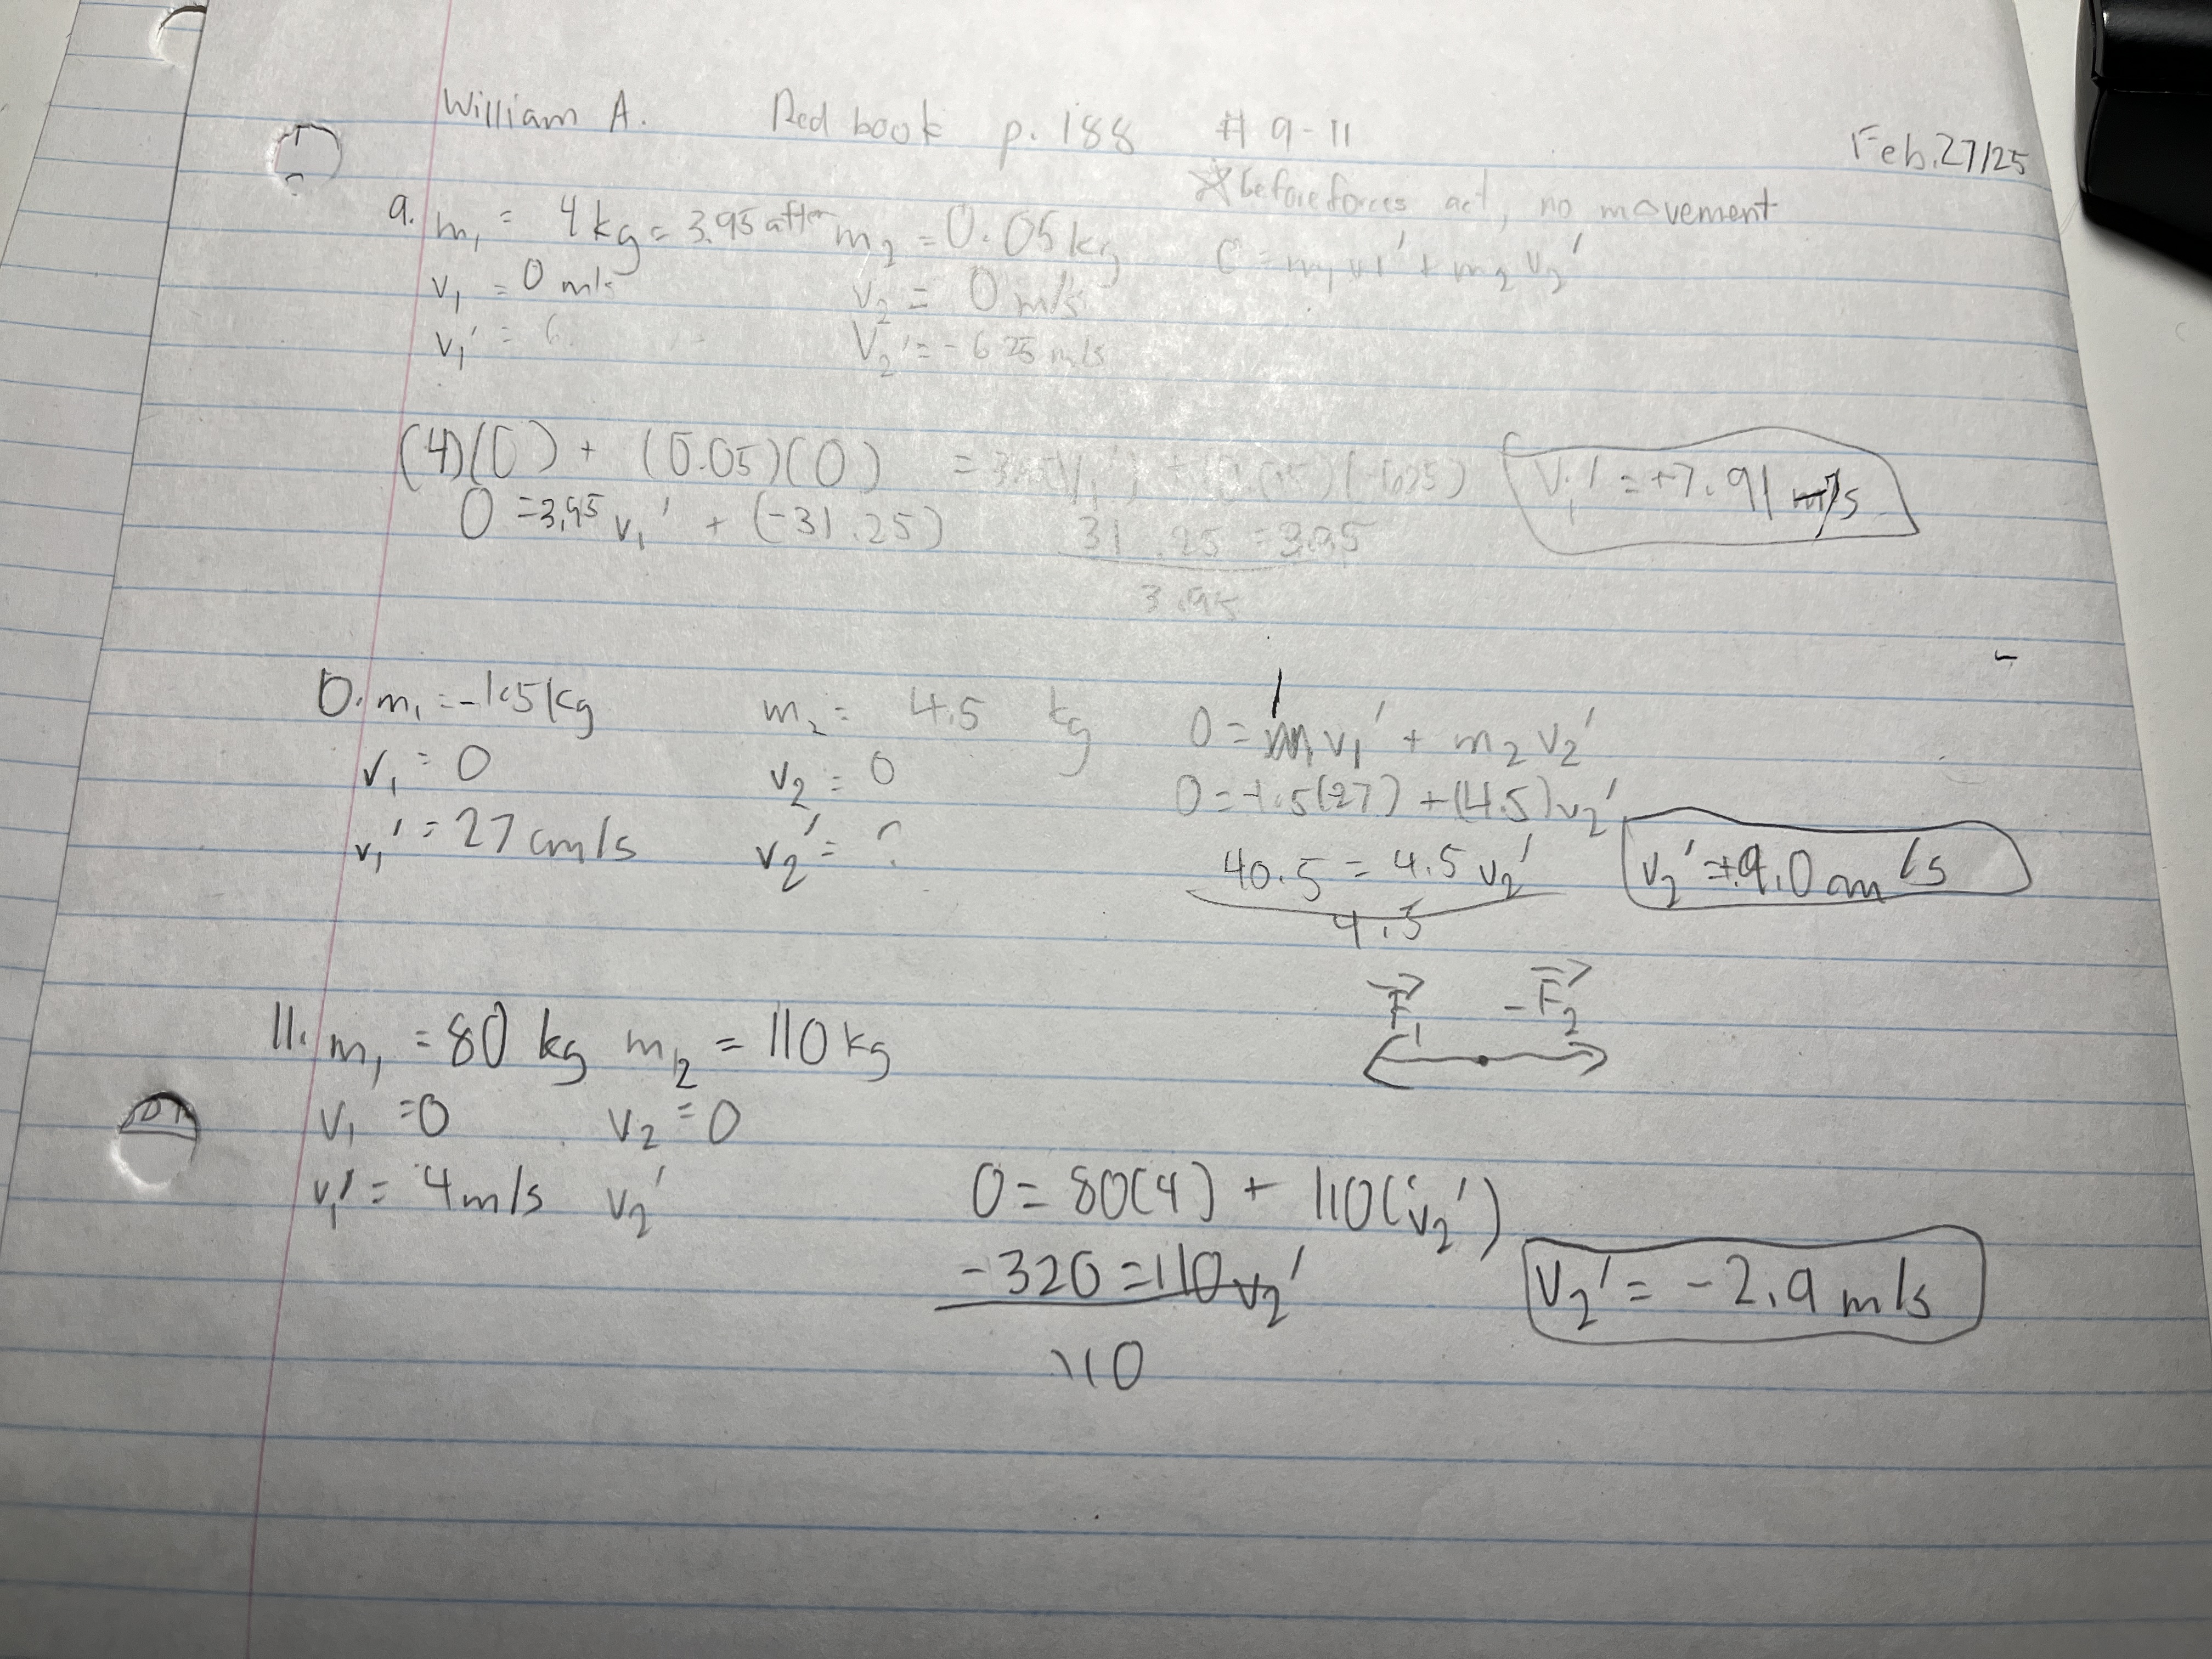 William A. Red book p. 188 # 9-11
Feb. 27/25
☆ before forces act, no movement
9. m₁ = 4 kg = 3.95 after m₂ = 0.05 kg 0 = m₁v₁' + m₂v₂'
v₁ = 0 m/s v₂ = 0 m/s
v₁' = V₂' = -625 m/s
(4)(0) + (0.05)(0) = 3.95(v₁') + (0.05)(-625) V₁' = +7.91 m/s
0 = 3.95 v₁' + (-31.25) 31.25 = 3.95
3.95
0. m₁ = -1.5 kg m₂ = 4.5 kg 0 = m₁v₁' + m₂v₂'
v₁ = 0 v₂ = 0 0 = -1.5(27) + (4.5)v₂'
v₁' = 27 cm/s v₂' = ? 40.5 = 4.5 v₂' v₂' = +9.0 cm/s
4.5
F₁ -F₂
11. m₁ = 80 kg m₂ = 110 kg
v₁ = 0 v₂ = 0
v₁' = 4 m/s v₂' 0 = 80(4) + 110(v₂')
-320 = 110v₂' V₂' = -2.9 m/s
110